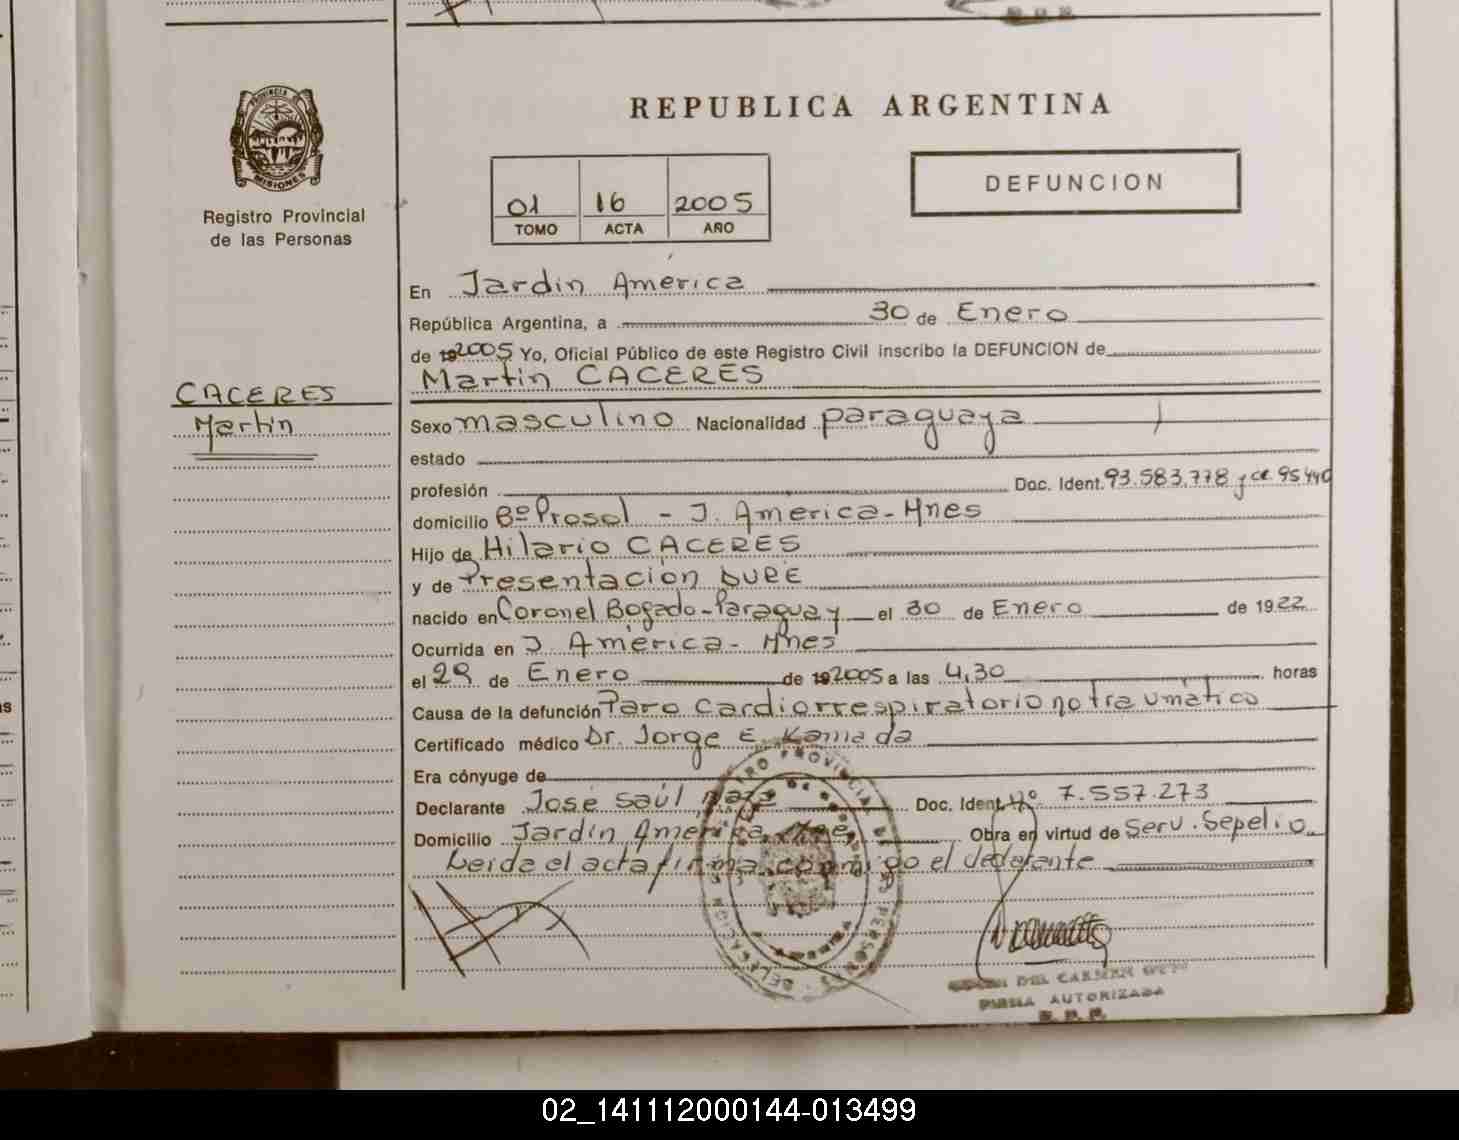 PROVINCIA DE
MISIONES
Registro Provincial
de las Personas
CACERES
Martin
REPUBLICA ARGENTINA
01 16 2005
TOMO ACTA AÑO
DEFUNCION
En Jardin America
República Argentina, a 30 de Enero
de 192005 Yo, Oficial Público de este Registro Civil inscribo la DEFUNCION de
Martin CACERES
Sexo masculino Nacionalidad paraguaya
estado
profesión Doc. Ident. 93.583.778 y ce 95440
domicilio Bº Prosol - J. America - Mnes
Hijo de Hilario CACERES
y de Presentación DURE
nacido en Coronel Bogado - Paraguay el 30 de Enero de 1922
Ocurrida en J. América - Mnes
el 29 de Enero de 192005 a las 4,30 horas
Causa de la defunción Paro Cardiorrespiratorio no traumático
Certificado médico Dr. Jorge E. Kamada
Era cónyuge de
Declarante José Saúl Doc. Ident. Nº 7.557.273
Domicilio Jardin America Obra en virtud de Serv. Sepelio
Leida el acta firma conmigo el declarante
DEL CARMEN
FIRMA AUTORIZADA
R. P. P.
02_141112000144-013499